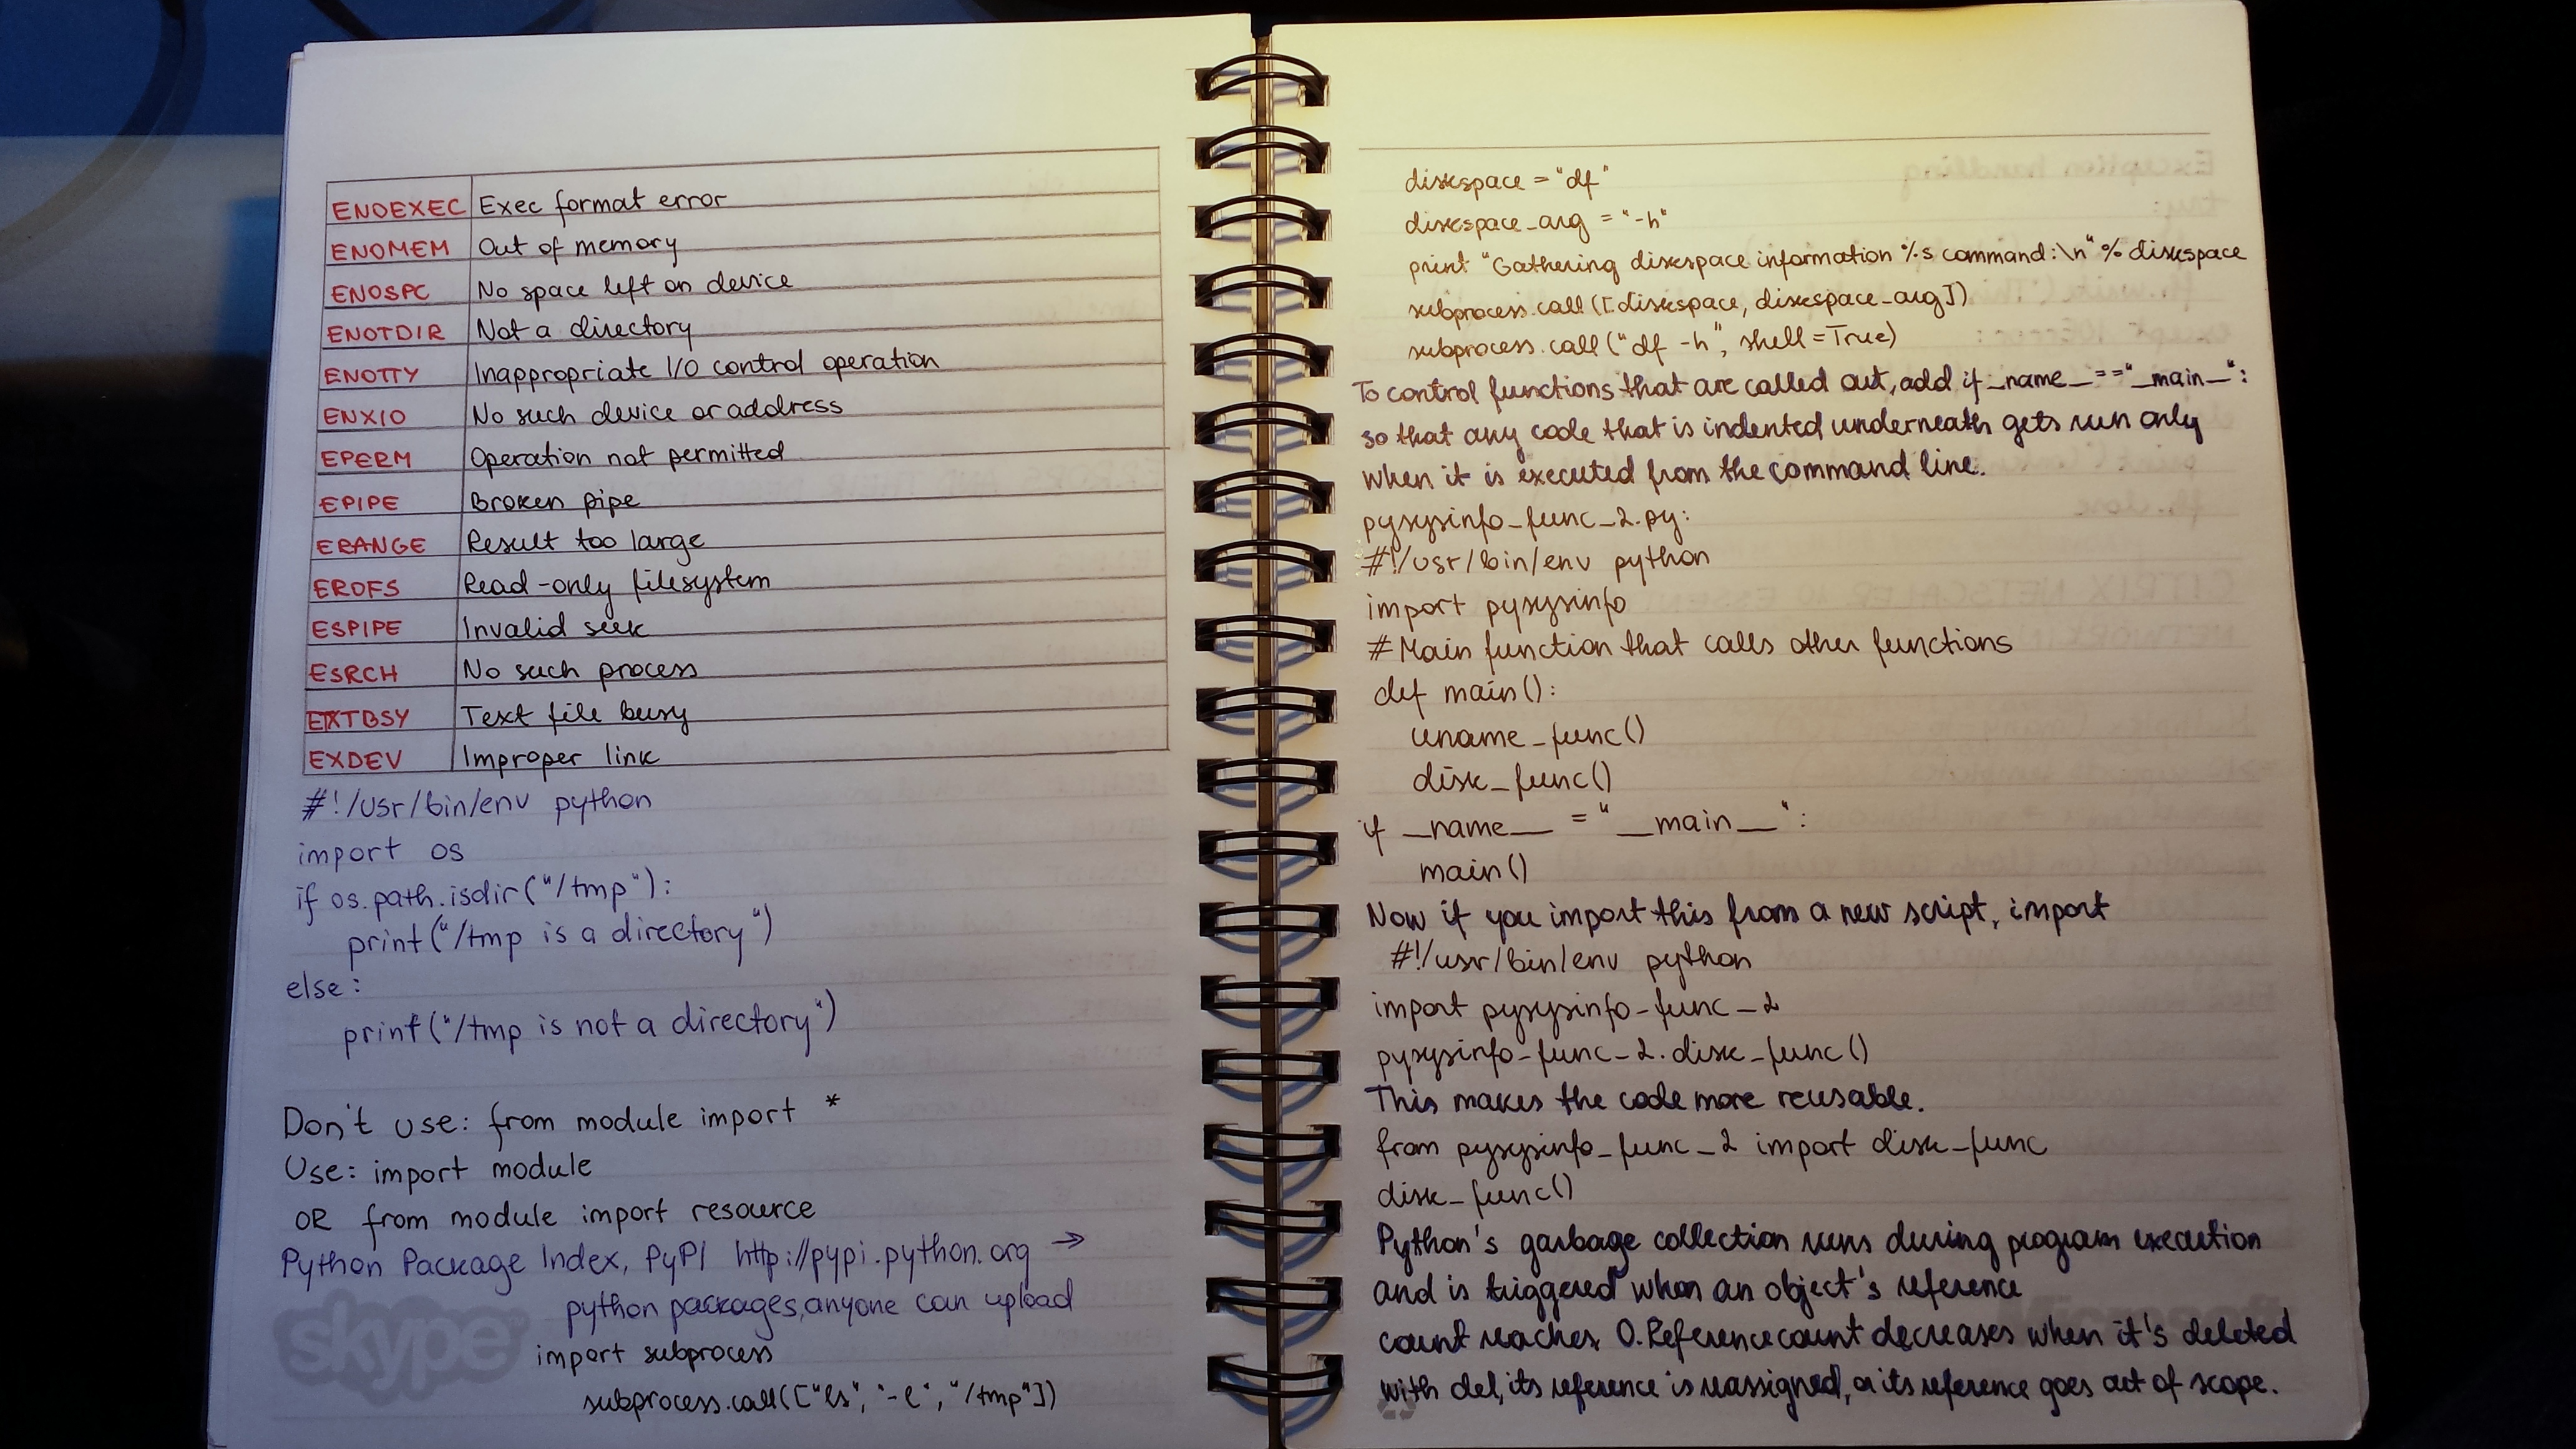 ENOEXEC Exec format error
ENOMEM Out of memory
ENOSPC No space left on device
ENOTDIR Not a directory
ENOTTY Inappropriate I/O control operation
ENXIO No such device or address
EPERM Operation not permitted
EPIPE Broken pipe
ERANGE Result too large
EROFS Read-only filesystem
ESPIPE Invalid seek
ESRCH No such process
ETXTBSY Text file busy
EXDEV Improper link
#!/usr/bin/env python
import os
if os.path.isdir("/tmp"):
print("/tmp is a directory")
else:
print("/tmp is not a directory")
Don't use: from module import *
Use: import module
OR from module import resource
Python Package Index, PyPI http://pypi.python.org →
python packages, anyone can upload
skype
import subprocess
subprocess.call(["ls", "-l", "/tmp"])
diskspace = "df"
diskspace_arg = "-h"
print "Gathering diskspace information %s command:\n" % diskspace
subprocess.call([diskspace, diskspace_arg])
subprocess.call("df -h", shell=True)
To control functions that are called out, add if __name__=="__main__":
so that any code that is indented underneath gets run only
when it is executed from the command line.
pysysinfo_func_2.py:
#!/usr/bin/env python
import pysysinfo
# Main function that calls other functions
def main():
uname_func()
disk_func()
if __name__ = "__main__":
main()
Now if you import this from a new script, import
#!/usr/bin/env python
import pysysinfo_func_2
pysysinfo_func_2.disk_func()
This makes the code more reusable.
from pysysinfo_func_2 import disk_func
disk_func()
Python's garbage collection runs during program execution
and is triggered when an object's reference
count reaches 0. Reference count decreases when it's deleted
with del, its reference is reassigned, or its reference goes out of scope.